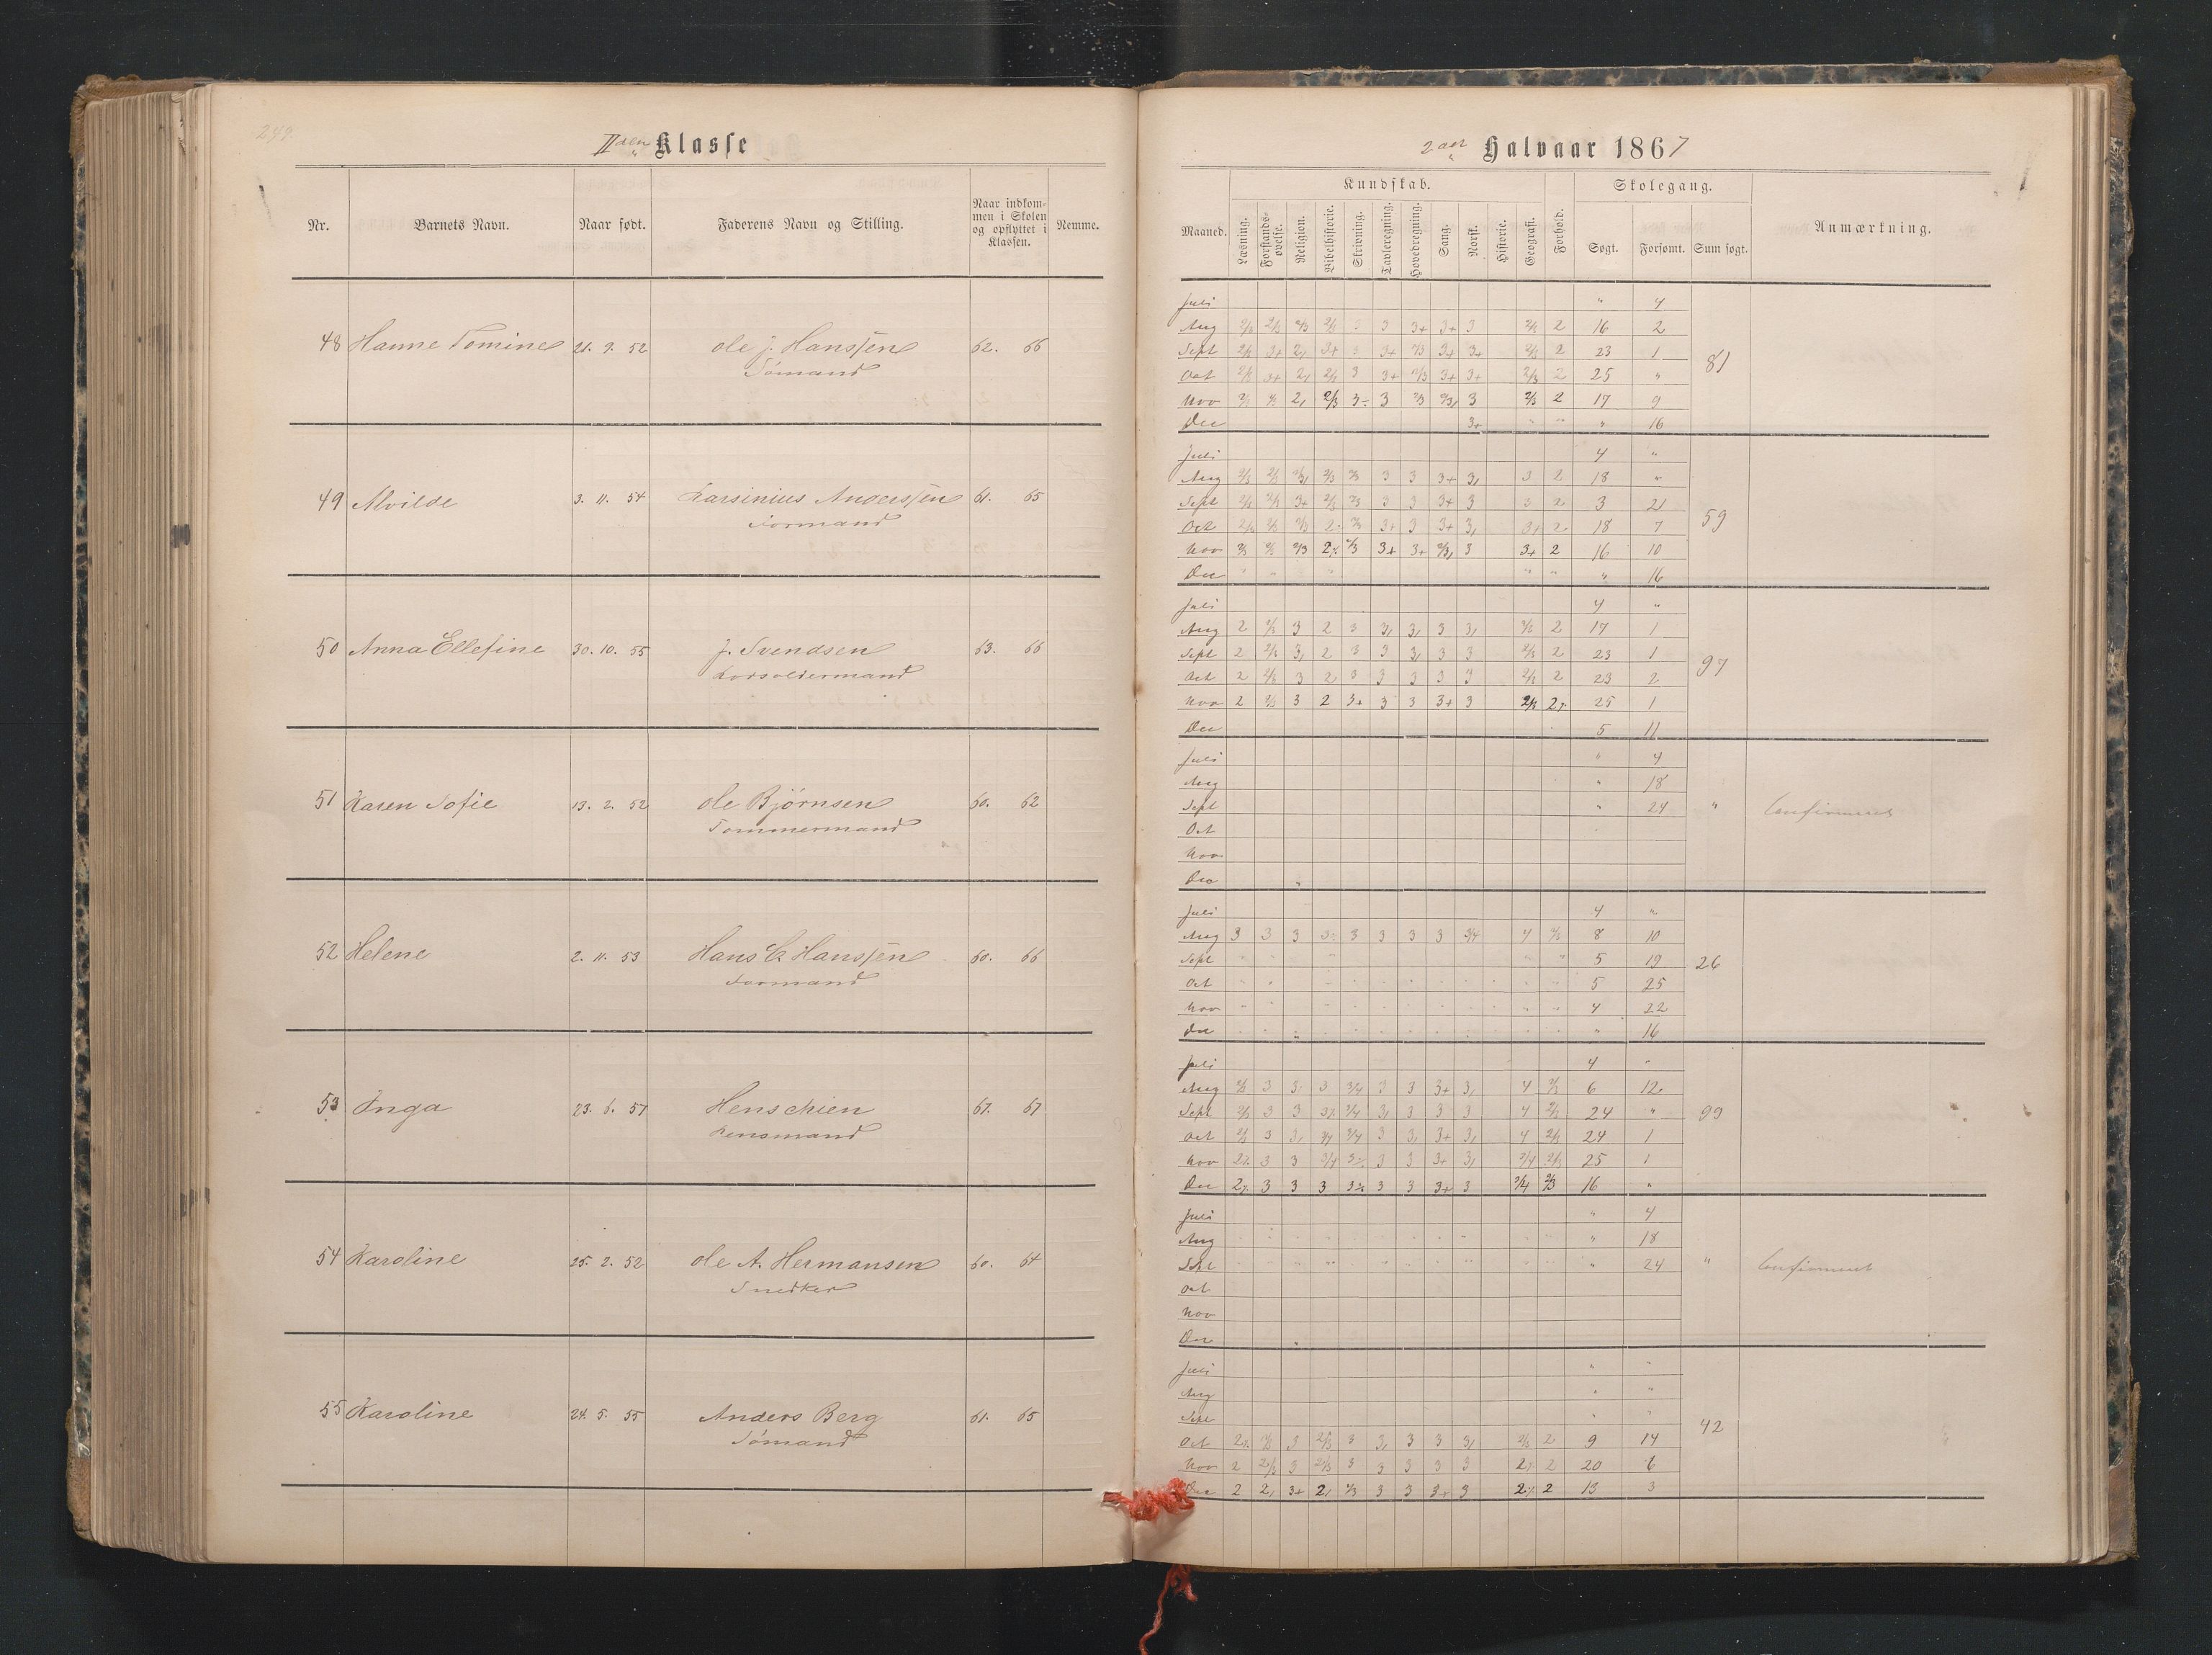 244.
IIden Klasse
Nr. Barnets Navn. Naar født. Faderens Navn og Stilling. Naar indkommen i Skolen og opflyttet i Klassen. Nemme.
48 Hanne Tomine 21. 9. 52 Ole J. Hanssen 62. 66
Sømand
49 Alvilde 3. 11. 54 Larsinius Anderssen 61. 65
Formand
50 Anna Ellefine 30. 10. 55 J. Svendsen 63. 66
Lodsoldermand
51 Karen Sofie 13. 2. 52 Ole Bjørnsen 60. 62
Tømmermand
52 Helene 2. 11. 53 Hans C Hanssen 60. 66
Formand
53 Inga 23. 6. 57 Henschien 67. 67
Lensmand
54 Karoline 25. 2. 52 Ole A. Hermansen 60. 64
Snedker
55 Karoline 24. 5. 55 Anders Berg 61. 65
Sømand
2den Halvaar 1867
Kundskab. Skolegang.
Maaned. Læsning. Forstandsøvelse. Religion. Bibelhistorie. Skrivning. Tavleregning. Hovedregning. Sang. Norsk. Historie. Geografi. Forhold. Søgt. Forsømt. Sum søgt. Anmærkning.
Juli " 4
Aug 3 3 3+ 3+ 3 2/3 2 16 2
Sept 2/3 3+ 2, 3+ 3 3+ 2/3 3+ 3+ 2/3 2 23 1
81
Oct 2/3 3+ 2, 2/3 3 3+ 2/3 3+ 3+ 2/3 2 25 "
Nov 2/3 2/3 2, 2/3 3÷ 3 2/3 2/3, 3 2/3 2 17 9
Dec 3+ " " " 16
Juli 4 "
Aug 2/3 2/3 2/3, 2/3 2/3 3 3 3+ 3, 3 2 18 "
Sept 2/3 2/3 3+ 2/3 2/3 3 3 3+ 3 3 2 3 21
59
Oct 2/3 2/3 2/3 2÷ 2/3 3+ 3 3+ 3, 3+ 2 18 7
Nov 2/3 2/3 2/3 2% 2/3 3+ 3+ 2/3, 3 3+ 2 16 10
Dec " 16
Juli 4 "
Aug 2 2/3 3 2 3 3, 3, 3 3, 2/3 2 17 1
Sept 2 2/3 3, 2 3 3 3, 3 3 2/3 2 23 1
97
Oct 2 2/3 3 2 3 3 3 3 3 2/3 2 23 2
Nov 2 2/3 3 2 3+ 3 3 3+ 3 2/3 2% 25 1
Dec 5 11
Juli " 4
Aug " 18
Sept " 24 " Confirmeret
Oct
Nov
Dec
Juli 4 "
Aug 3 3 3 3÷ 3 3 3 3 3/4 4 2/3 8 10
Sept 5 19 26
Oct 5 25
Nov 4 22
Dec " 16
Juli 4 "
Aug 2/3 3 3 3 3/4 3 3 3+ 3, 4 2/3 6 12
Sept 2/3 3 3 3% 3/4 3, 3 3 3 4 2/3 24 " 99
Oct 2/3 3 3, 3/4 3/4 3 3, 3+ 3, 4 2/3 24 1
Nov 2% 3 3 3/4 3% 3 3 3+ 3, 3/4 2/3 25 1
Dec 2% 3 3 3 3% 3 3 3+ 3 3/4 2/3 16 "
Juli " 4
Aug " 18
Sept " 24 " Confirmeret
Oct
Nov
Dec
Juli " "
Aug " "
Sept " "
42
Oct 2% 2/3 3 2/3 3 3, 3 3 3, 2/3 2 9 14
Nov 2 2/3 3 2/3 3 3 3 3 3 2, 2 20 6
Dec 2 2, 3+ 2, 2/3 3 3 3+ 3 2% 2 13 3